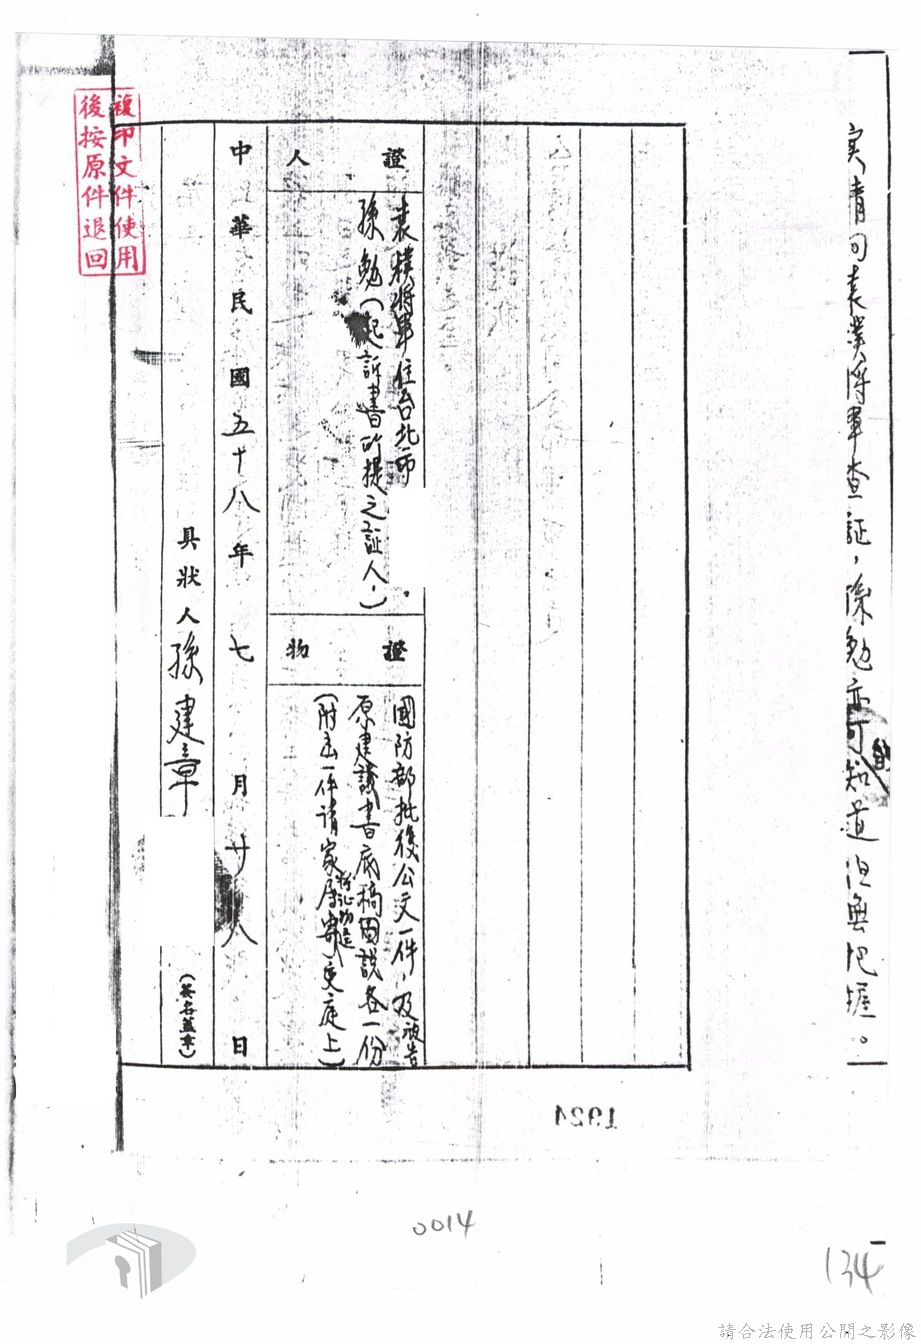 实請向袁業將軍查証，孫勉亦可能知道但無把握。
證人
袁樸將軍住台北市 。
孫勉（起訴書所提之証人，）
證物
國防部批後公文一件，及被告
原建議書底稿圖說各一份
（附呈一件請家屬寄 更庭上）
中華民國五十八年七月廿八日
具狀人 孫建章
（簽名蓋章）
複印文件使用
後按原件退回
1921
0014
134
請合法使用公開之影像